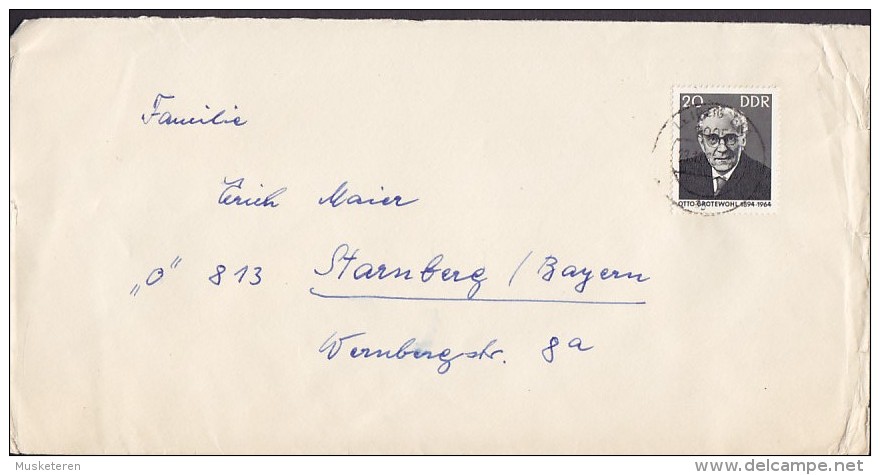 20 DDR
OTTO GROTEWOHL 1894-1964
Familie
Erich Maier
„O" 813 Starnberg / Bayern
Wernbergstr. 8a
Musketeren
www.delcampe.net